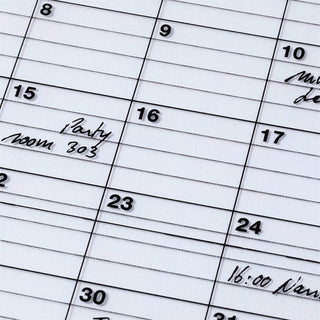 8
9
10
15
Party
room 303
16
17
23
24
16:00
30